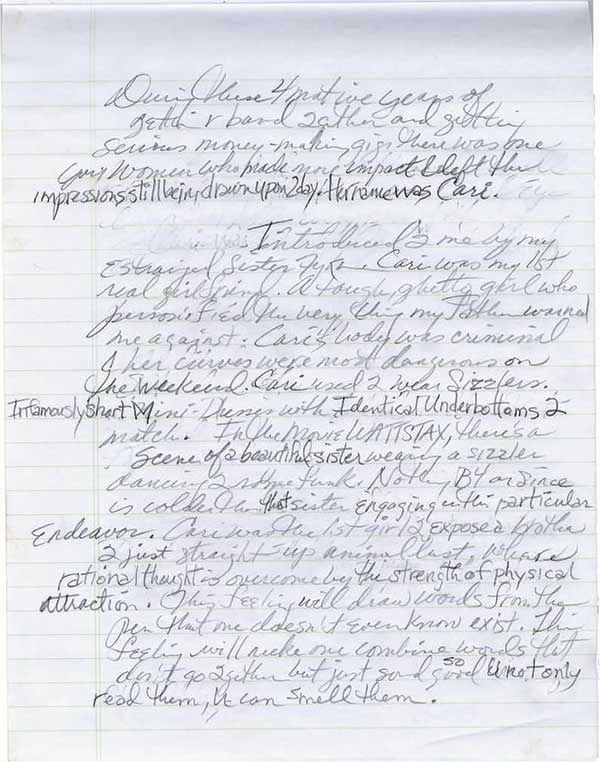 During these 4mative years of
gettin r band 2gether and getting
serious money-making gigs there was one
young Women who made more impact & left the
impressions still being drawn upon 2day. Her name was Cari.
Cari was Introduced 2 me by my
Estranged Sister Tyka. Cari was my 1st
real girlfriend. A tough, ghetto girl who
personified the very thing my Father warned
me against. Cari's body was criminal
& her curves were most dangerous on
the weekend. Cari used 2 wear Sizzlers.
Infamously Short Mini-Dresses with Identical Underbottoms 2
match. In the Movie WATTSTAX, there's a
Scene of a beautiful sister wearing a sizzler
dancing 2 some funk. Nothing B4 or Since
is colder than that sister engaging in this particular
Endeavor. Cari was the 1st girl 2 expose a brotha
2 just straight up animal lust, where
rational thought is overcome by the strength of physical
attraction. This feeling will draw words from the
pen that one doesn't even know exist. This
feeling will make one combine words that
don't go 2gether but just sound so good U not only
read them, U can smell them.